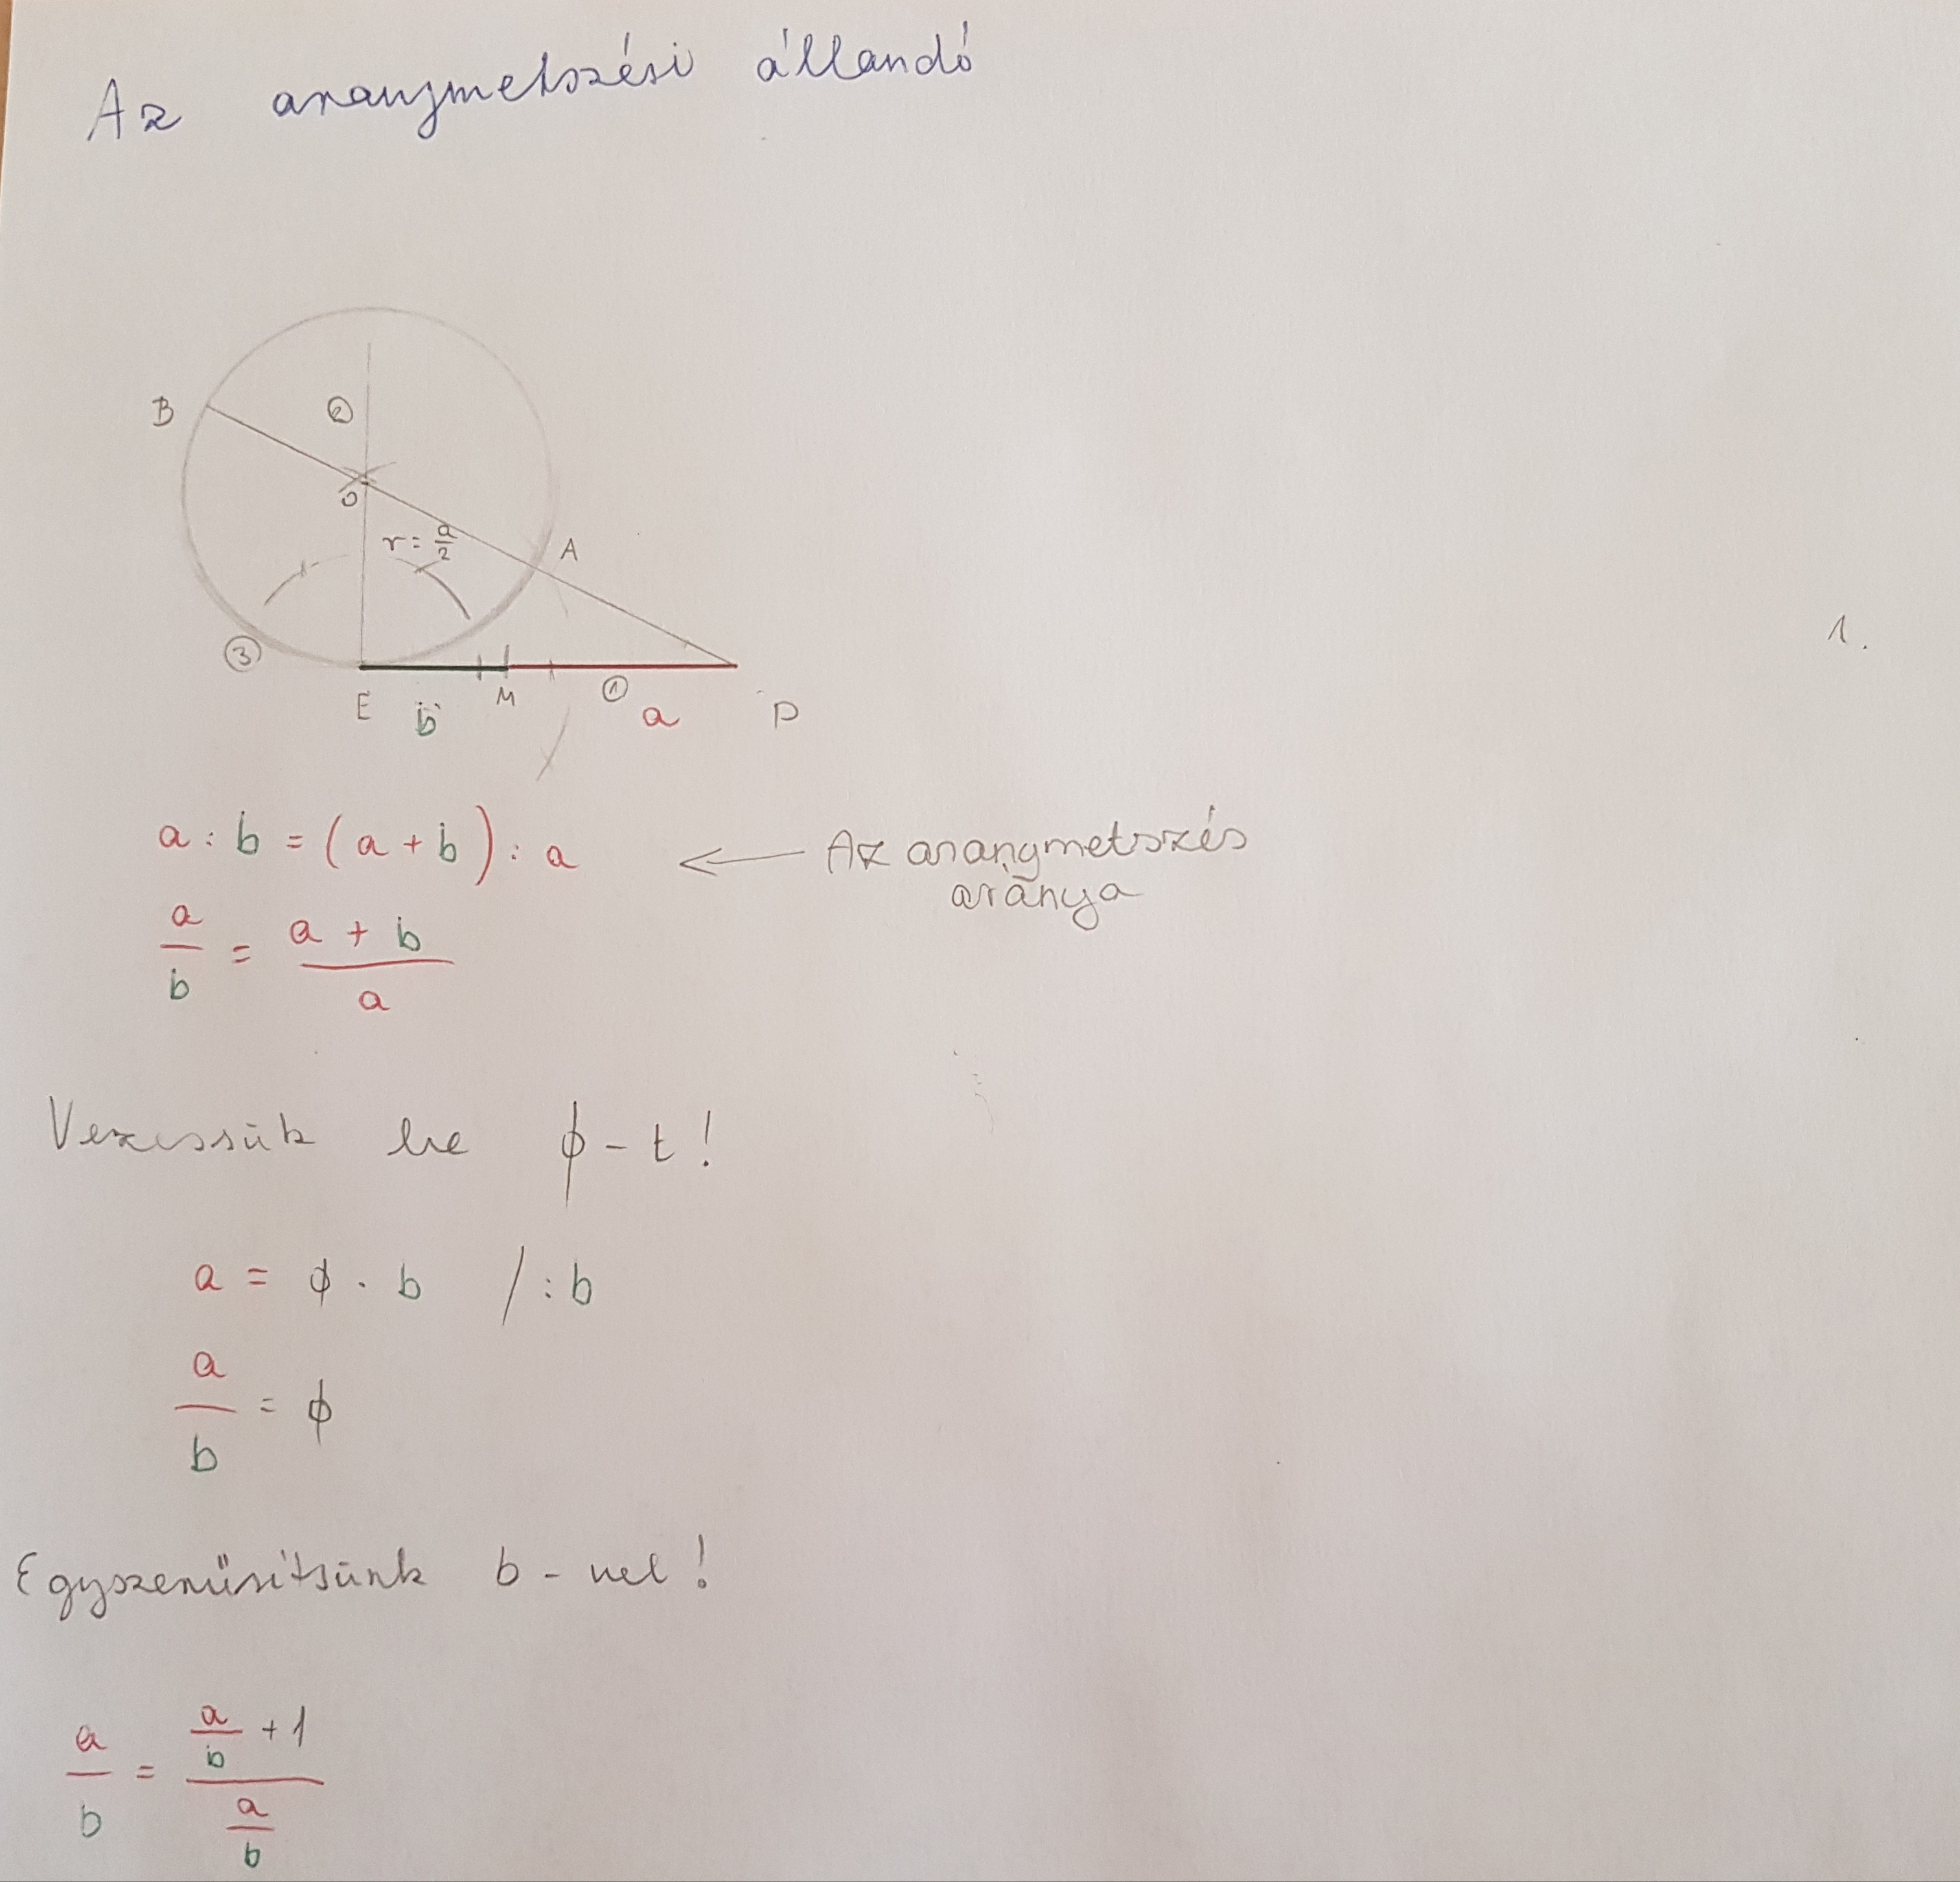 Az aranymetszési állandó
B
②
O
r = a/2
A
③
1.
E
b
M
①
a
P
a : b = (a + b) : a
Az aranymetszés
aránya
a/b = (a + b)/a
Vezessük be ϕ-t!
a = ϕ · b /: b
a/b = ϕ
Egyszerűsítsünk b-vel!
a/b = (a/b + 1)/(a/b)